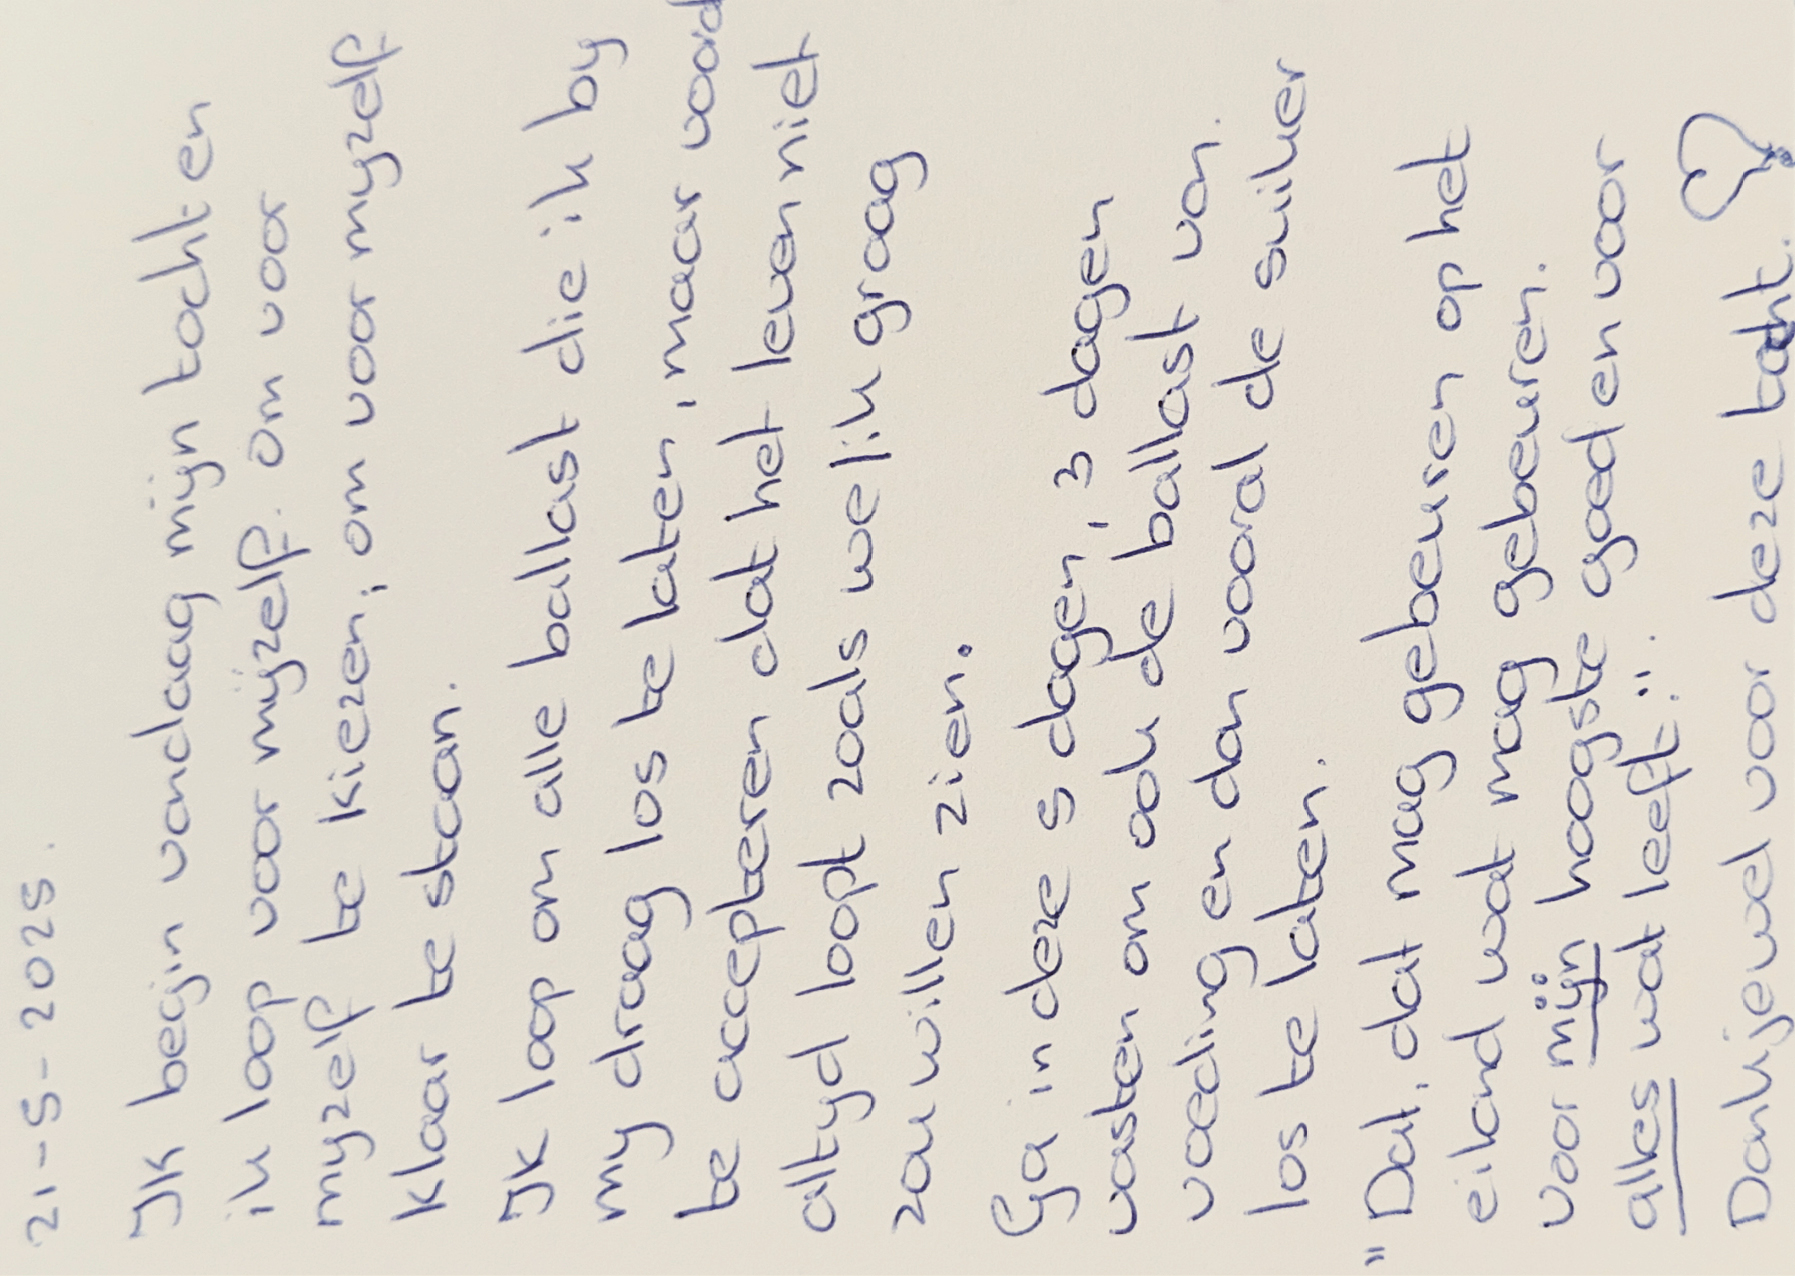 21-5-2025.
Ik begin vandaag mijn tocht en
ik loop voor mijzelf. Om voor
myzelf te kiezen, om voor myzelf
klaar te staan.
Ik loop om alle ballast die ik by
my draag los te laten, maar voord
te accepteren dat het leven niet
altyd loopt zoals we / ik graag
zou willen zien.
Ga in deze 5 dagen, 3 dagen
vasten om ook de ballast van
voeding en dan vooral de suiker
los te laten.
"Dat, dat mag gebeuren op het
eiland wat mag gebeuren.
Voor mijn hoogste goed en voor
alles wat leeft".
Dankjewel voor deze tocht.